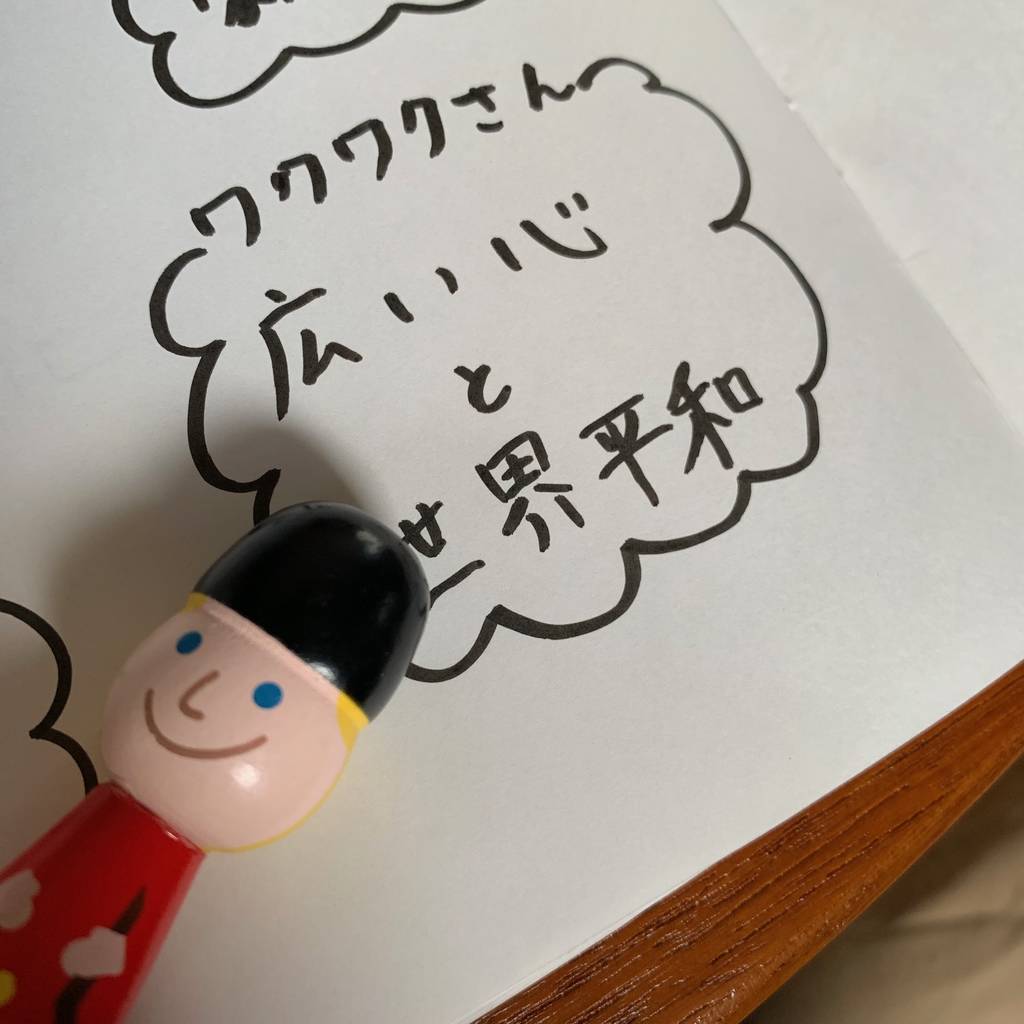 ワクワクさん
広い心
と
世界平和